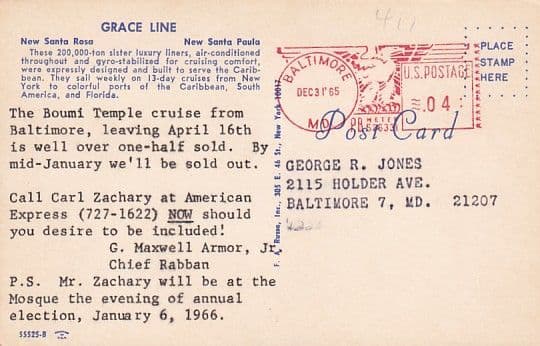 411
GRACE LINE
New Santa Rosa New Santa Paula
These 200,000-ton sister luxury liners, air-conditioned
throughout and gyro-stabilized for cruising comfort,
were expressly designed and built to serve the Carib-
bean. They sail weekly on 13-day cruises from New
York to colorful ports of the Caribbean, South
America, and Florida.
The Boumi Temple cruise from
Baltimore, leaving April 16th
is well over one-half sold. By
mid-January we'll be sold out.
Call Carl Zachary at American
Express (727-1622) NOW should
you desire to be included!
G. Maxwell Armor, Jr
Chief Rabban
P.S. Mr. Zachary will be at the
Mosque the evening of annual
election, January 6, 1966.
55525-B
F. A. Russo, Inc., 305 E. 46 St., New York 10017
BALTIMORE
DEC31'65
MD.
U.S. POSTAGE
.04
PB METER
PLACE
STAMP
HERE
Post Card
GEORGE R. JONES
2115 HOLDER AVE.
BALTIMORE 7, MD. 21207